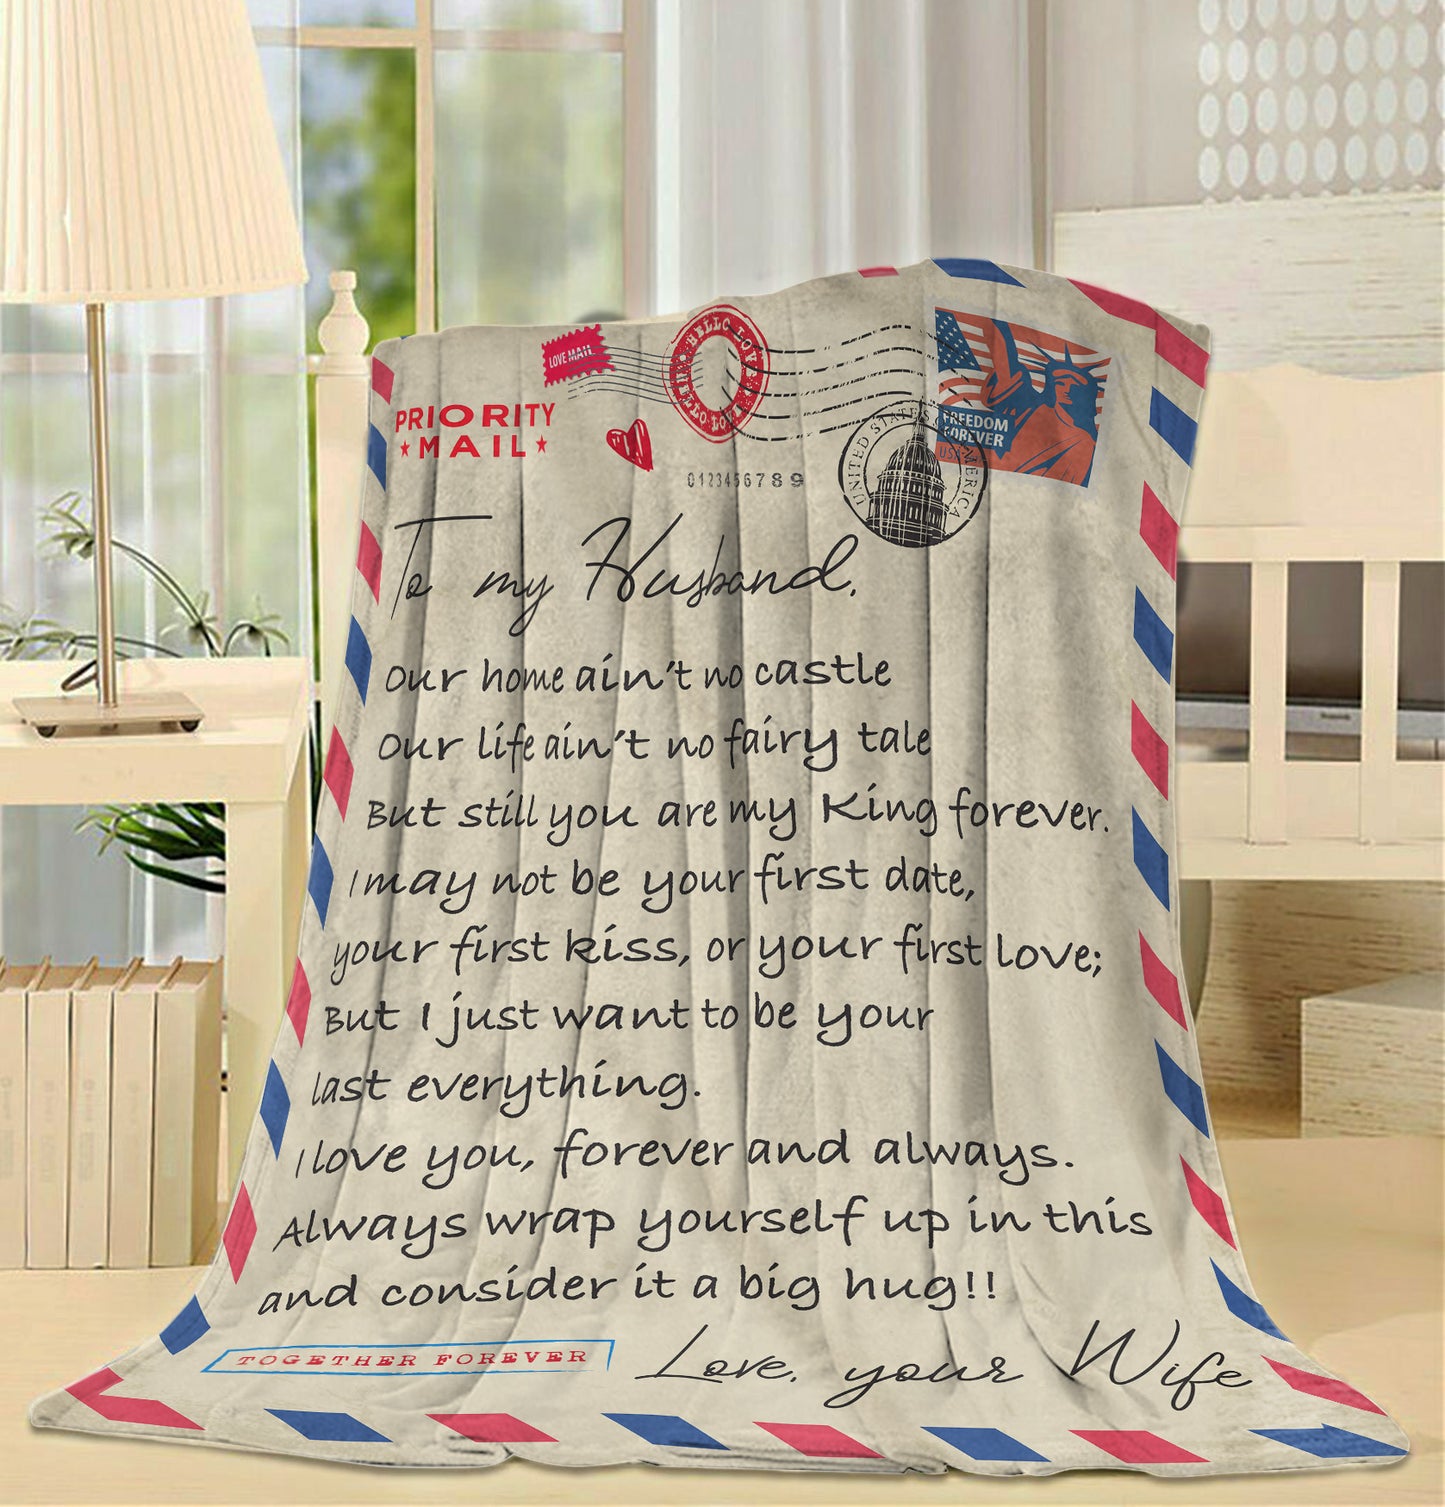 LOVE MAIL
HELLO LOVE HELLO LOVE
PRIORITY
MAIL
0123456789
FREEDOM
FOREVER
USA
UNITED STATES OF AMERICA
To my Husband,
Our home ain't no castle
Our life ain't no fairy tale
But still you are my King forever.
I may not be your first date,
your first kiss, or your first love;
But I just want to be your
last everything.
I love you, forever and always.
Always wrap yourself up in this
and consider it a big hug!!
TOGETHER FOREVER
Love, your Wife